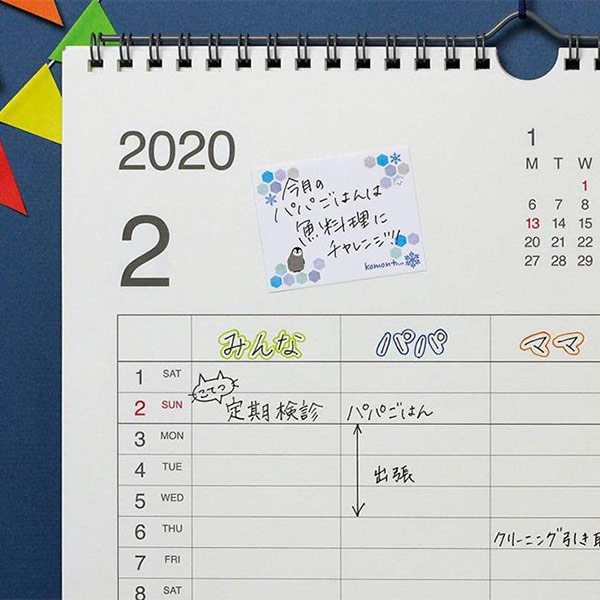 2020
2
今月の
パパごはんは
魚料理に
チャレンジ!!
1
M T W
1
6 7 8
13 14 15
20 21 22
27 28 29
みんな パパ ママ
1 SAT
こてつ
2 SUN 定期検診 パパごはん
3 MON
4 TUE 出張
5 WED
6 THU クリーニング引き取
7 FRI
8 SAT